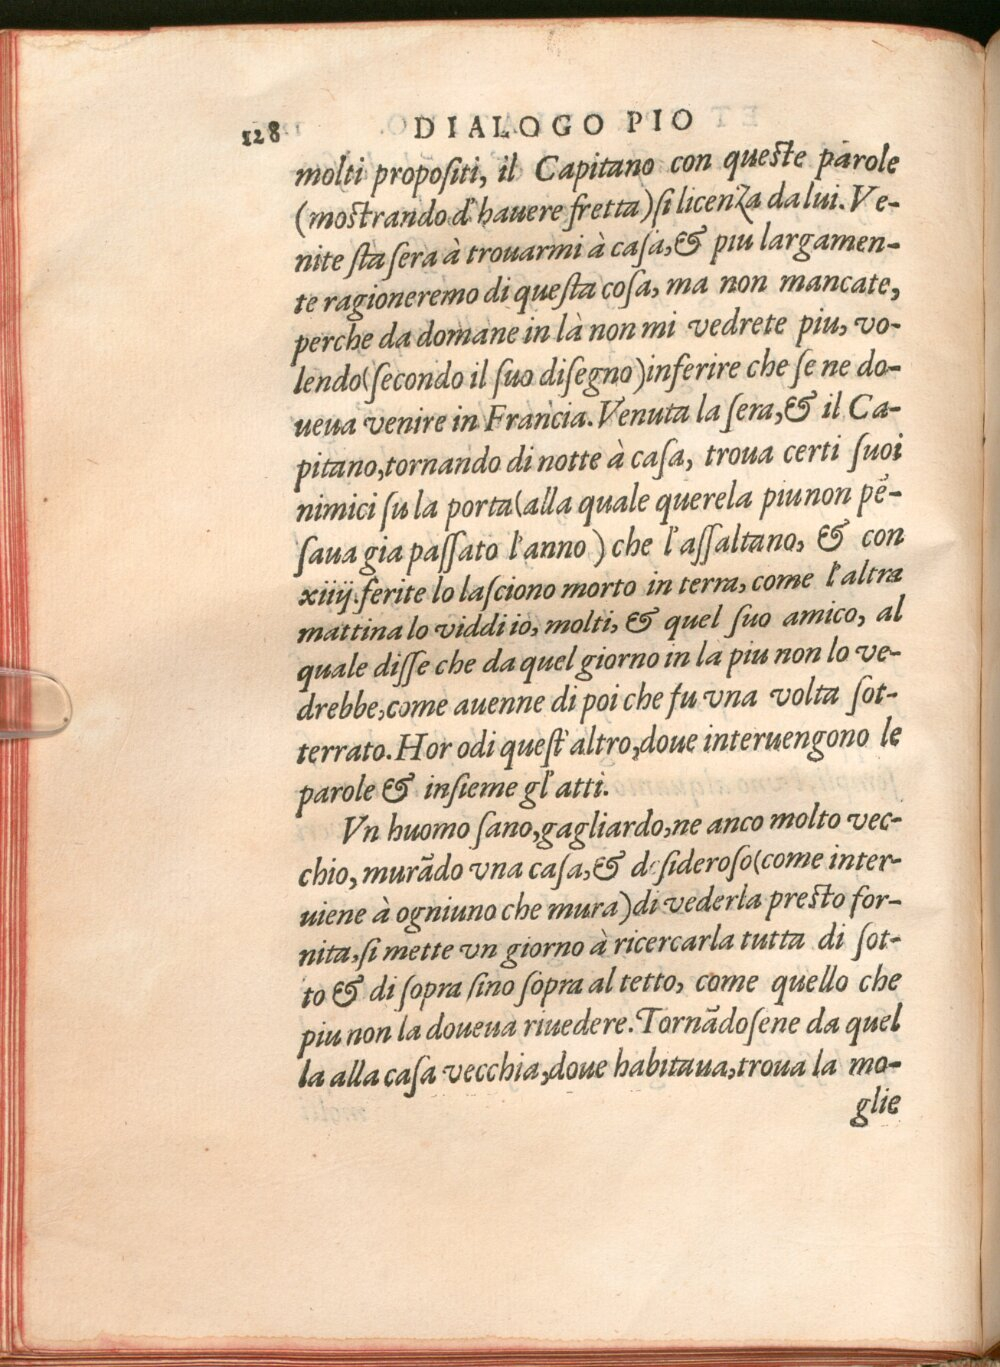 128 DIALOGO PIO
molti propositi, il Capitano con queste parole
(mostrando d'hauere fretta) si licenza da lui. Ve-
nite sta sera à trouarmi à casa, & piu largamen-
te ragioneremo di questa cosa, ma non mancate,
perche da domane in là non mi vedrete piu, vo-
lendo (secondo il suo disegno) inferire che se ne do-
ueua venire in Francia. Venuta la sera, & il Ca-
pitano, tornando di notte à casa, troua certi suoi
nimici su la porta (alla quale querela piu non pē-
saua gia passato l'anno) che l'assaltano, & con
xiiij. ferite lo lasciono morto in terra, come l'altra
mattina lo viddi io, molti, & quel suo amico, al
quale disse che da quel giorno in la piu non lo ve-
drebbe, come auenne di poi che fu vna volta sot-
terrato. Hor odi quest'altro, doue interuengono le
parole & insieme gl'atti.
Vn huomo sano, gagliardo, ne anco molto vec-
chio, murādo vna casa, & desideroso (come inter-
uiene à ogniuno che mura) di vederla presto for-
nita, si mette vn giorno à ricercarla tutta di sot-
to & di sopra sino sopra al tetto, come quello che
piu non la doueua riuedere. Tornādosene da quel
la alla casa vecchia, doue habitaua, troua la mo-
glie